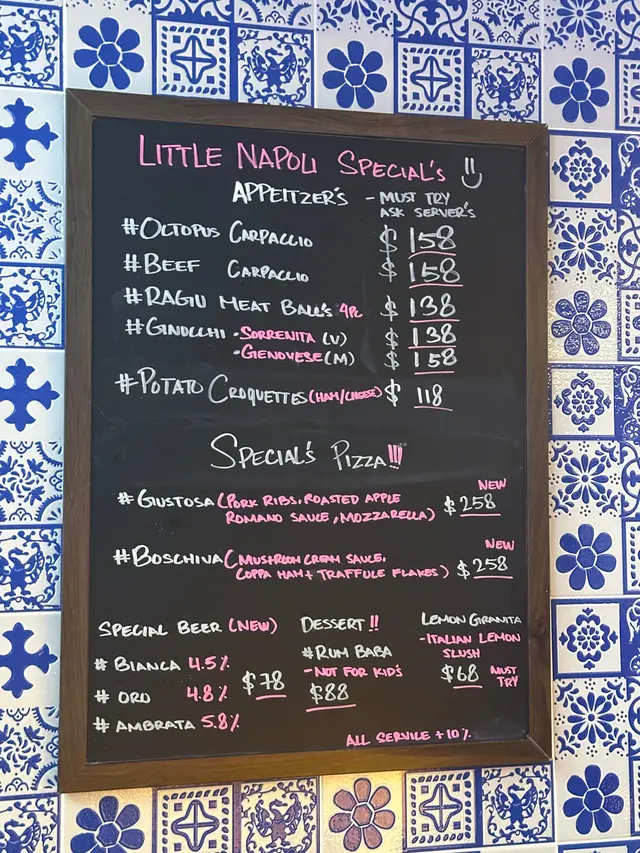 LITTLE NAPOLI SPECIAL'S
APPEITZER'S - MUST TRY
ASK SERVER'S
#OCTOPUS CARPACCIO $ 158
#BEEF CARPACCIO $ 158
#RAGIU MEAT BALL'S 4PC $ 138
#GINOCCHI • SORRENITA (V) $ 138
• GENOVESE (M) $ 158
#POTATO CROQUETTES (HAM/CHEESE) $ 118
SPECIAL'S PIZZA!!!
NEW
#GIUSTOSA (PORK RIBS, ROASTED APPLE $258
ROMANO SAUCE, MOZZARELLA)
NEW
#BOSCHIVA (MUSHROOM CREAM SAUCE, $258
COPPA HAM + TRAFFULE FLAKES)
SPECIAL BEER (NEW)
# BIANCA 4.5%
# ORO 4.8%
$78
# AMBRATA 5.8%
DESSERT !!
#RUM BABA
- NOT FOR KID'S
$88
LEMON GRANITA
- ITALIAN LEMON
SLUSH
$68 MUST
TRY
ALL SERVICE +10%